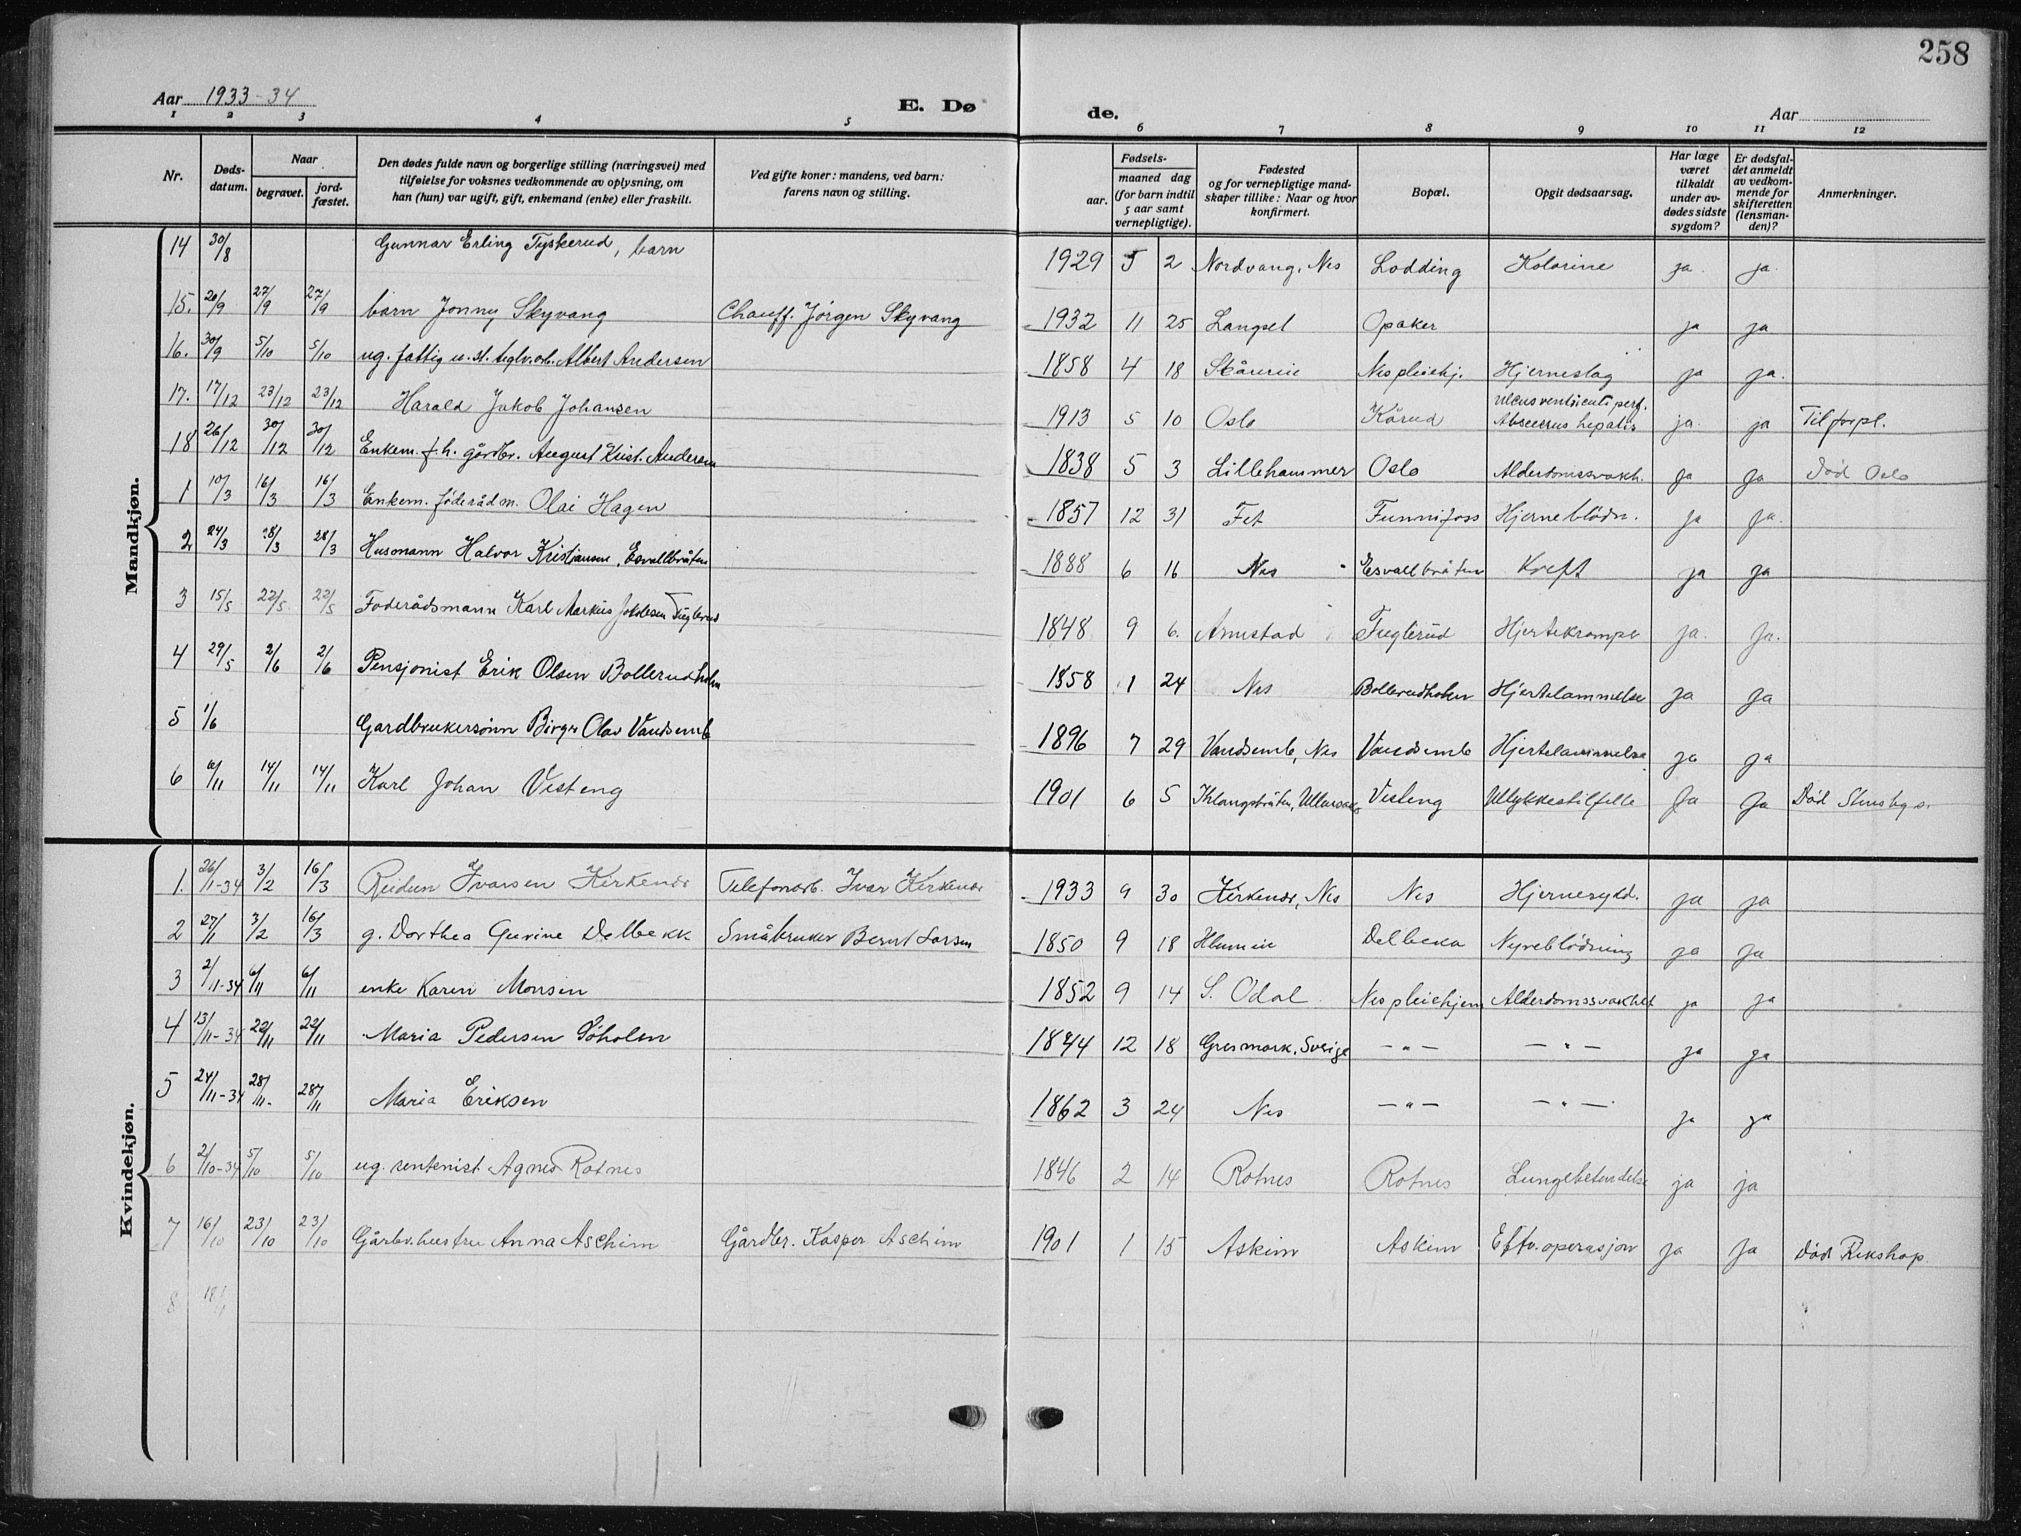 258
Aar 1933-34 E. Dø de. Aar
1 2 3 4 5 6 7 8 9 10 11 12
Nr. Døds-datum. Naar begravet. jord-fæstet. Den dødes fulde navn og borgerlige stilling (næringsvei) med tilføielse for voksnes vedkommende av oplysning, om han (hun) var ugift, gift, enkemand (enke) eller fraskilt. Ved gifte koner: mandens, ved barn: farens navn og stilling. Fødsels- aar. maaned dag (for barn indtil 5 aar samt vernepligtige). Fødested og for vernepligtige mandskaper tillike: Naar og hvor konfirmert. Bopæl. Opgit dødsaarsag. Har læge været tilkaldt under avdødes sidste sygdom? Er dødsfaldet anmeldt av vedkommende for skifteretten (lensmanden)? Anmerkninger.
Mandkjøn.
14 30/8 Gunnar Erling Tyskerud, barn 1929 5 2 Nordvang, Nes Lodding Kolorine ja ja
15. 20/9 27/9 27/9 barn Jonny Skyvang Chauff. Jørgen Skyvang 1932 11 25 Langset Opaker ja ja
16. 30/9 5/10 5/10 ug. fattig u. st. teglv.arb. Albert Andersen 1858 4 18 Nes pleiehj. Hjerneslag ja ja.
17. 17/12 23/12 23/12 Harald Jakob Johansen 1913 5 10 Oslo Kårud Ulcus ventriculi perf. Abscessus hepatis ja. ja Til forpl.
18 26/12 30/12 30/12 Enkem. f.h. gårdbr. August Krist. Andersen 1838 5 3 Lillehammer Oslo Alderdomssvakh. ja ja Død Oslo
1 10/3 16/3 16/3 Enkem. føderådm. Olai Hagen 1857 12 31 Fet Funnifoss Hjerneblødn. ja ja.
2 24/3 28/3 28/3 Husmann Halvor Kristiansen, Esvallbråten 1888 6 16 Nes Esvallbråten Kreft ja ja
3 15/5 22/5 22/5 Føderådsmann Karl Markus Fuglerud 1848 9 6. Arnestad Fuglerud Hjertekrampe ja. ja.
4 29/5 2/6 2/6 Pensjonist Erik Olsen Bollerudholm 1858 1 24 Nes Hjertelammelse ja ja
5 1/6 Gardbrukersønn Birger Olav Vandsemb 1896 7 29 Vandsemb, Nes Vandsemb Hjertelammelse ja ja
6 6/11 14/11 14/11 Karl Johan Visteng 1901 6 5 Visteng Ulykkestilfelle Ja Ja Død Stensby s.
Kvindekjøn.
1. 26/1-34 3/2 16/3 Reidun Ivarsen Kirkenær Telefonarb. Ivar Kirkenær 1933 9 30 Kirkenær, Nes Nes Hjernesygd. ja ja
2 27/1 3/2 16/3 g. Dorthea Gurine Delbekk Småbruker Bernt Larsen 1850 9 18 Delbekk Nyreblødning ja ja
3 2/11-34 6/11 6/11 enke Karen Monsen 1852 9 14 S. Odal Nes pleiehjem Alderdomssvakhet ja ja
4 13/11-34 22/11 22/11 Maria Pedersen Søholm 1844 12 18 Gresmark, Sverige —"— —"— ja ja
5 24/11-34 28/11- 28/11 Maria Eriksen 1862 3 24 Nes —"— —"— ja ja
6 2/10-34 5/10 5/10 ug. rentenist Agnes Rotnes 1846 2 14 Rotnes Rotnes Lungebetendelse ja ja
7 16/10 23/10 23/10 Gårbr.hustru Anna Aschim Gårdbr. Kasper Aschim 1901 1 15 Askim Askim Eftr. operasjon ja ja Død Rikshop.
8 18/1